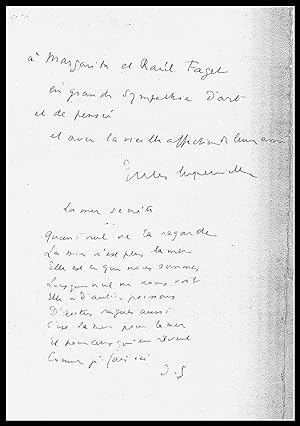 à Margarita et Raúl Faget
en grande sympathie d'art
et de pensée
et avec la vieille affection de leur ami
Jules Supervielle
La mer secrète
Quand nul ne la regarde
La mer n'est plus la mer
Elle est ce que nous sommes
Lorsque nul ne nous voit
Elle a d'autres poissons
D'autres vagues aussi
C'est la mer pour la mer
Et pour ceux qui en rêvent
Comme je fais ici
J. S